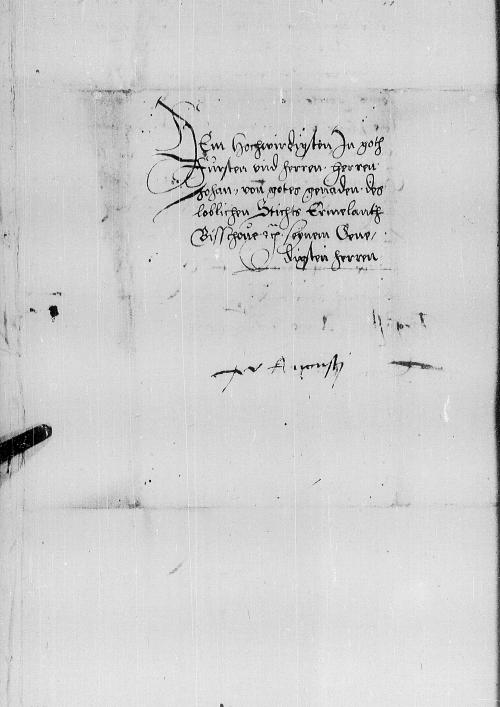 Dem Hochwirdigsten Jn goth
Fursten vnd herren herren
Johan, von gotes genaden des
loblichen Stichts Ermelanth
Bisschoue etc. seynem Gene/
digsten herren
Augusti